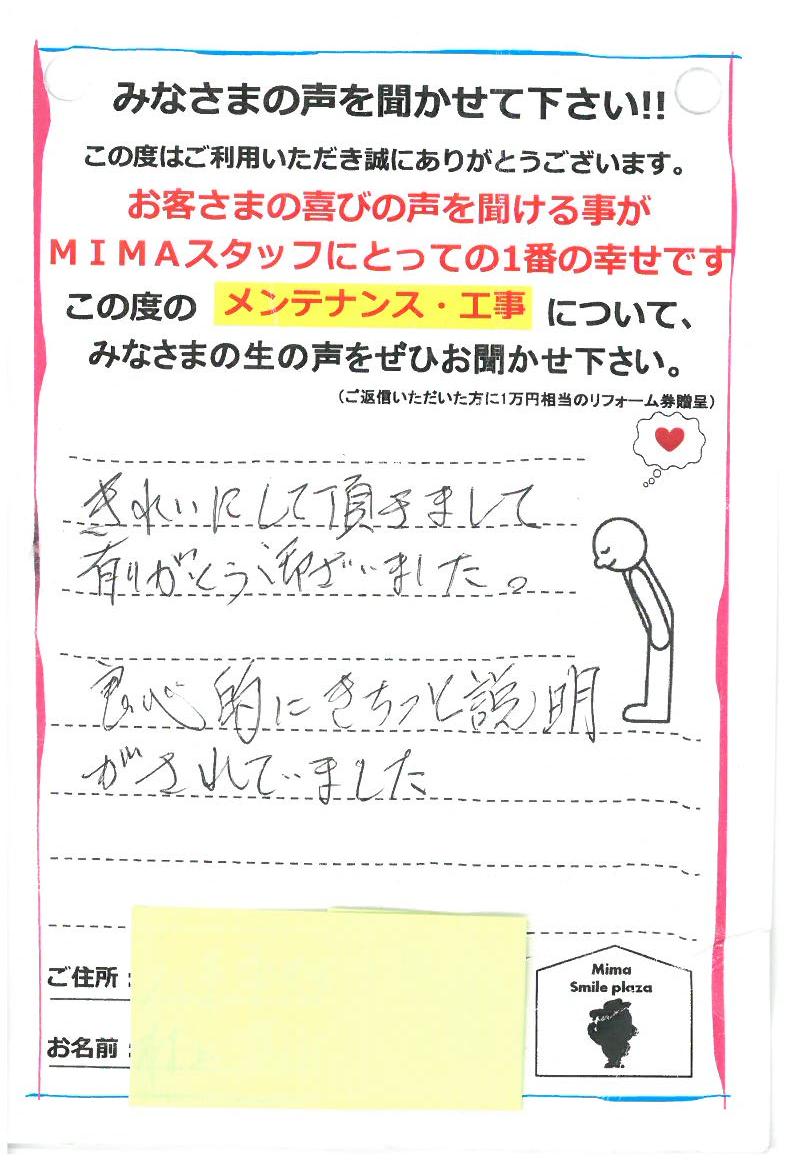 みなさまの声を聞かせて下さい!!
この度はご利用いただき誠にありがとうございます。
お客さまの喜びの声を聞ける事が
ＭＩＭＡスタッフにとっての1番の幸せです
この度の メンテナンス・工事 について、
みなさまの生の声をぜひお聞かせ下さい。
（ご返信いただいた方に1万円相当のリフォーム券贈呈）
きれいにして頂きまして
有りがとう御ざいました。
良心的にきちっと説明
がされていました
ご住所：
お名前：
Mima
Smile plaza